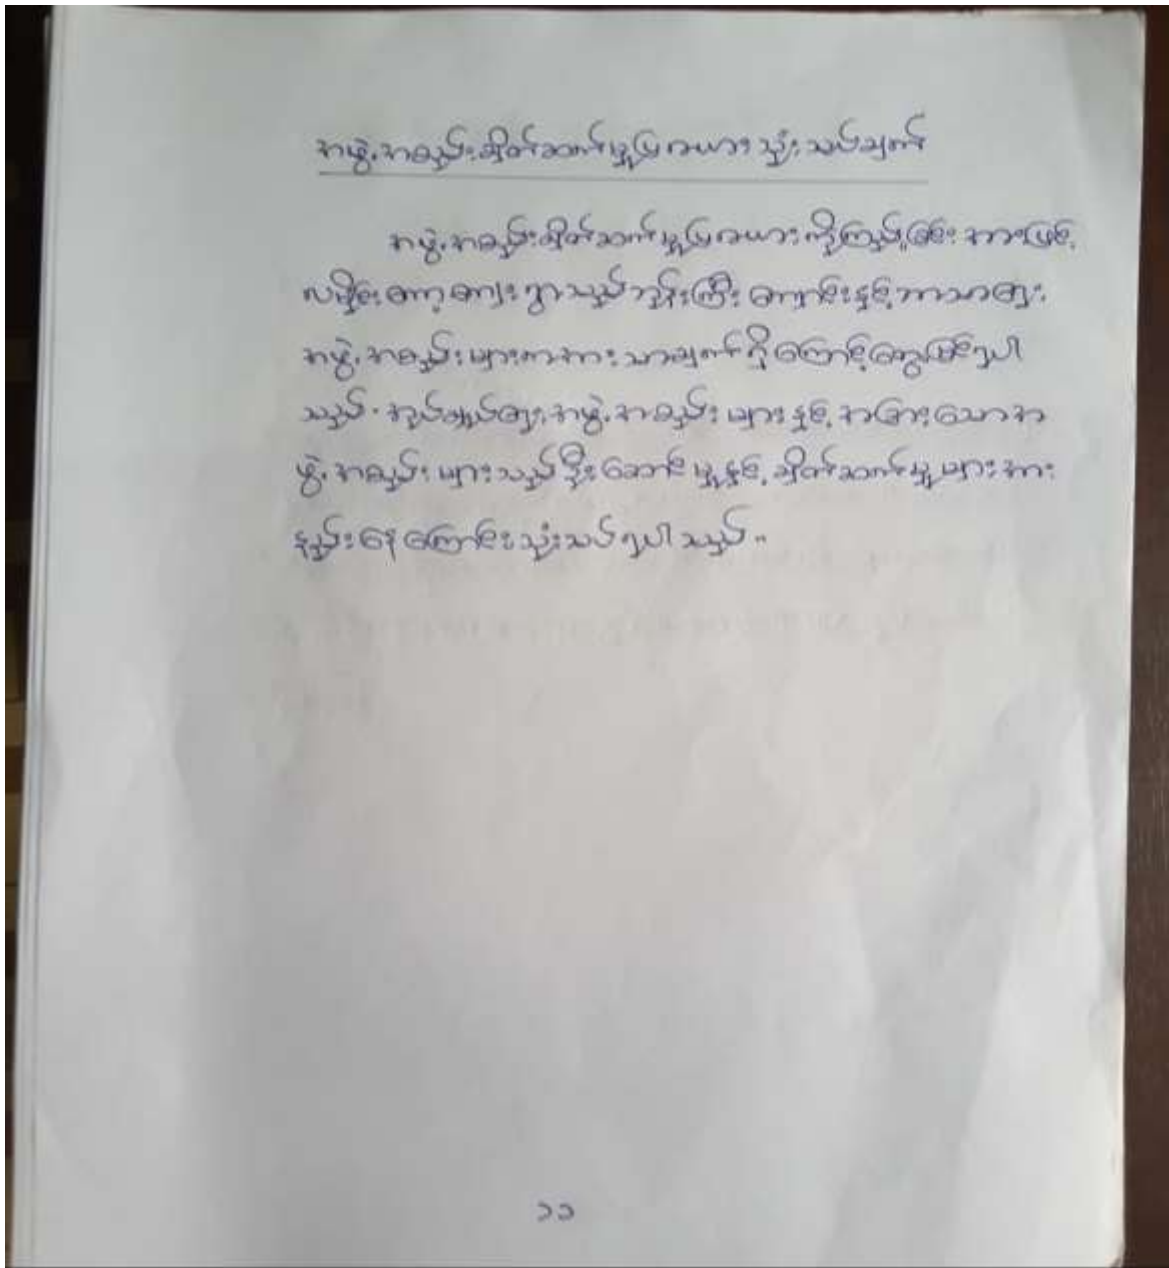 အဖွဲ့အစည်းချိတ်ဆက်မှုပြဇယားသုံးသပ်ချက်
အဖွဲ့အစည်းချိတ်ဆက်မှုပြဇယားကိုကြည့်ခြင်းအားဖြင့်
လမိုင်းကော့ကျေးရွာသည်ဘုန်းကြီးကျောင်းနှင့်ဘာသာရေး
အဖွဲ့အစည်းများကအားသာချက်ရှိကြောင့်တွေ့မြင်ရပါ
သည်။ အုပ်ချုပ်ရေးအဖွဲ့အစည်းများနှင့်အခြားသောအ
ဖွဲ့အစည်းများသည်ဦးဆောင်မှုနှင့်ချိတ်ဆက်မှုများအား
နည်းနေကြောင်းသုံးသပ်ရပါသည်။
၁၁